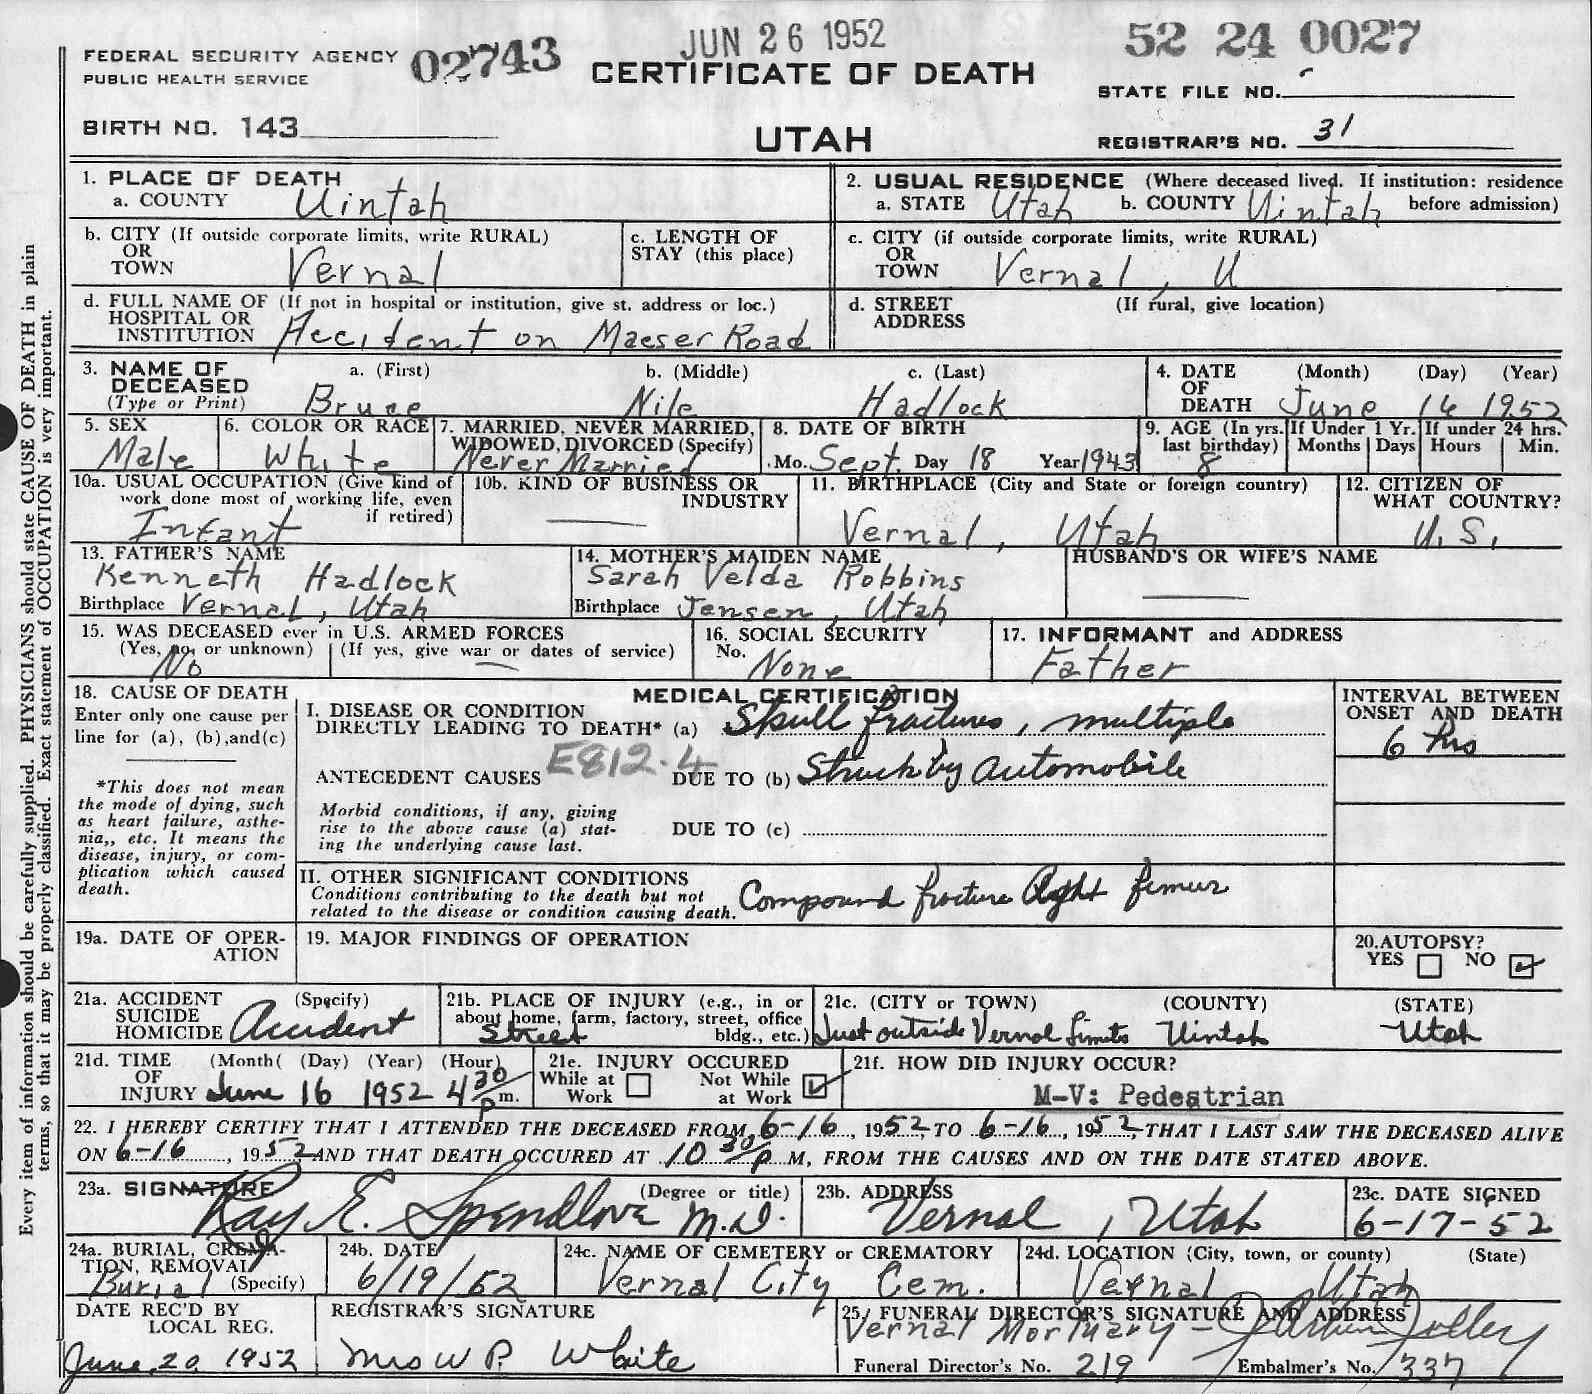 JUN 26 1952
52 24 0027
FEDERAL SECURITY AGENCY 02743
PUBLIC HEALTH SERVICE
CERTIFICATE OF DEATH
STATE FILE NO.
BIRTH NO. 143
UTAH
REGISTRAR'S NO. 31
1. PLACE OF DEATH
a. COUNTY Uintah
2. USUAL RESIDENCE (Where deceased lived. If institution: residence
a. STATE Utah b. COUNTY Uintah before admission)
b. CITY (If outside corporate limits, write RURAL)
OR
TOWN Vernal
c. LENGTH OF
STAY (this place)
c. CITY (if outside corporate limits, write RURAL)
OR
TOWN Vernal, U
d. FULL NAME OF (If not in hospital or institution, give st. address or loc.)
HOSPITAL OR
INSTITUTION Accident on Maeser Road
d. STREET (If rural, give location)
ADDRESS
3. NAME OF DECEASED
(Type or Print)
a. (First) b. (Middle) c. (Last)
Bruce Nile Hadlock
4. DATE OF DEATH (Month) (Day) (Year)
June 16 1952
5. SEX
Male
6. COLOR OR RACE
White
7. MARRIED, NEVER MARRIED,
WIDOWED, DIVORCED (Specify)
Never Married
8. DATE OF BIRTH
Mo. Sept. Day 18 Year 1943
9. AGE (In yrs. last birthday)
8
If Under 1 Yr.
Months Days
If under 24 hrs.
Hours Min.
10a. USUAL OCCUPATION (Give kind of
work done most of working life, even
if retired)
Infant
10b. KIND OF BUSINESS OR
INDUSTRY
11. BIRTHPLACE (City and State or foreign country)
Vernal, Utah
12. CITIZEN OF
WHAT COUNTRY?
U.S.
13. FATHER'S NAME
Kenneth Hadlock
Birthplace Vernal, Utah
14. MOTHER'S MAIDEN NAME
Sarah Velda Robbins
Birthplace Jensen, Utah
HUSBAND'S OR WIFE'S NAME
15. WAS DECEASED ever in U.S. ARMED FORCES
(Yes, no, or unknown) (If yes, give war or dates of service)
No
16. SOCIAL SECURITY
No. None
17. INFORMANT and ADDRESS
Father
18. CAUSE OF DEATH
Enter only one cause per
line for (a), (b), and (c)
*This does not mean
the mode of dying, such
as heart failure, asthe-
nia,, etc. It means the
disease, injury, or com-
plication which caused
death.
MEDICAL CERTIFICATION
I. DISEASE OR CONDITION
DIRECTLY LEADING TO DEATH* (a) Skull fractures, multiple
ANTECEDENT CAUSES E812.4 DUE TO (b) Struck by Automobile
Morbid conditions, if any, giving
rise to the above cause (a) stat-
ing the underlying cause last.
DUE TO (c)
II. OTHER SIGNIFICANT CONDITIONS
Conditions contributing to the death but not
related to the disease or condition causing death. Compound fracture Right femur
INTERVAL BETWEEN
ONSET AND DEATH
6 hrs
19a. DATE OF OPER-
ATION
19. MAJOR FINDINGS OF OPERATION
20. AUTOPSY?
YES NO
21a. ACCIDENT (Specify)
SUICIDE
HOMICIDE Accident
21b. PLACE OF INJURY (e.g., in or
about home, farm, factory, street, office
bldg., etc.)
Street
21c. (CITY or TOWN) (COUNTY) (STATE)
Just outside Vernal Limits Uintah Utah
21d. TIME (Month( (Day) (Year) (Hour)
OF
INJURY June 16 1952 4 30 p m.
21e. INJURY OCCURED
While at Work Not While at Work
21f. HOW DID INJURY OCCUR?
M-V: Pedestrian
22. I HEREBY CERTIFY THAT I ATTENDED THE DECEASED FROM 6-16, 1952, TO 6-16, 1952, THAT I LAST SAW THE DECEASED ALIVE
ON 6-16, 1952 AND THAT DEATH OCCURED AT 10 30 P M, FROM THE CAUSES AND ON THE DATE STATED ABOVE.
23a. SIGNATURE (Degree or title)
Ray E. Spendlove M.D.
23b. ADDRESS
Vernal, Utah
23c. DATE SIGNED
6-17-52
24a. BURIAL, CREMA-
TION, REMOVAL
(Specify)
Burial
24b. DATE
6/19/52
24c. NAME OF CEMETERY or CREMATORY
Vernal City Cem.
24d. LOCATION (City, town, or county) (State)
Vernal Utah
DATE REC'D BY
LOCAL REG.
June 20 1952
REGISTRAR'S SIGNATURE
Mrs W P. White
25. FUNERAL DIRECTOR'S SIGNATURE AND ADDRESS
Vernal Mortuary - J Arthur Jolley
Funeral Director's No. 219 Embalmer's No. 337
Every item of information should be carefully supplied. PHYSICIANS should state CAUSE OF DEATH in plain
terms, so that it may be properly classified. Exact statement of OCCUPATION is very important.